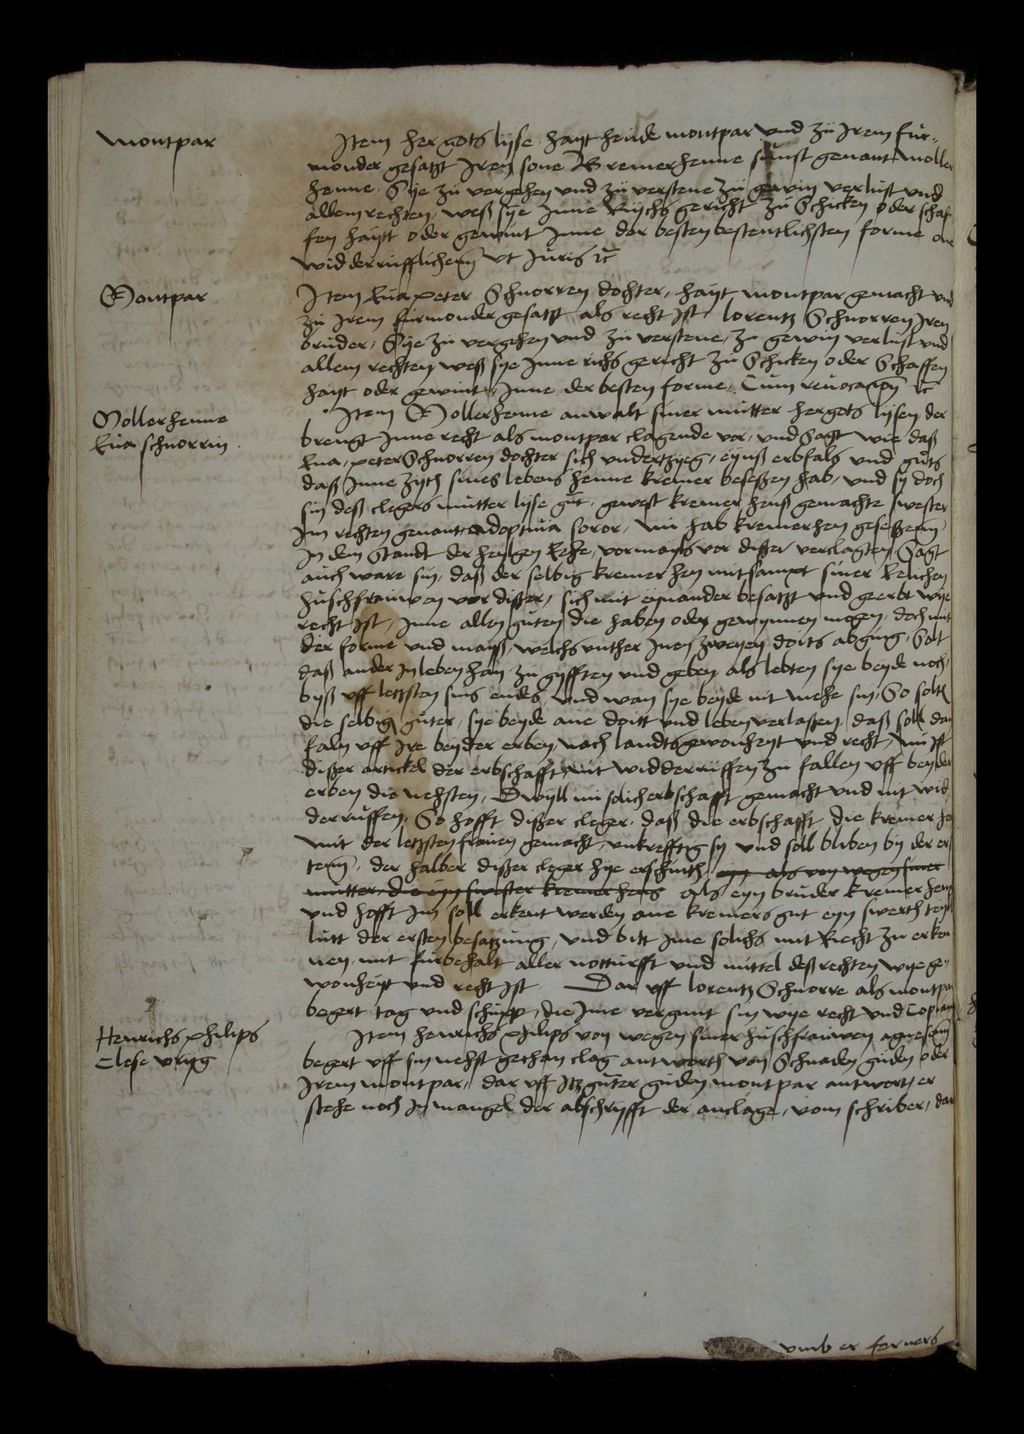 Montpar
Item hergots lyse hayt heude montpar und zu Irem fur-
monder gesatzt Iren sone Bremerhenne sunst genant Moller
henne Sye zu vergehen und zu verstene zu gewin verlust und
allem rechten, weß sye Inne Rychs gericht zu Schicken oder schaf
fen hayt oder gewint Inne der besten bestentlichsten forme an
widderrufflichenn ut Juris
Montpar
Item Eua peter Schnorren dochter, hayt montpar gemacht und
zu Irem furmonder gesatzt als recht ist, lorentz Schnorren Iren
bruder, Sye zu vergehen und zu verstene, zu gewin verlust und
allem rechten weß sye Inne richs gericht zu Schicken oder Schaffen
hayt oder gewint, Inne der besten forme, Cum reuocacion
Mollerhenne
Eua schnorrin
Item Mollerhenne anwalt siner mutter hergots lysen der
brengt Inne recht als montpar clagende vor, und Sagt wie daß
Eua, peter Schnorren dochter sich undertzyeg, eynß erbfals und guts
daß Inne zyth sines lebens henne kremer beseßen hab, und sy doch
sin deß clegers mutter lyse gewest kremer henß gemachte swester
Im rechten genant adoptiua soror, nu hab kremerhen geseßenn
In dem Standt der heyligen Eehe, vormayls vor dißer verclagten, Sagt
auch ware sin, daß der selbig kremer hen mitsampt siner Eelichen
hußfrauwen vor dißer, sich mit eynander besatzt und geerbt wye
recht ist, Inne allen guten die haben oder gewynnen mogen, doch mit
der forme und mayß, welchs unther Inen zweyen doits abging, Solt
daß ander In leben han zu gyfften und geben, als lebten sye beyde noch,
byß uff letzsten sins endes, und wan sye beyde nit mehe sin, So solten
die selbig guter, sye beyde ane doitt und leben verlassen, daß soll dan
faln uff Ire beyder erben, nach landtsgewonheyt und recht, nu ist
dißer artickel der erbschafft nit widderruffen zu fallen uff beyder
erben die nehsten, Dwyll nu solich erbschafft gemacht und nit wid
derruffen, So hofft dißer cleger, daß die erbschafft die kremer
mit der letzsten frauen gemacht, unkrefftig sy und soll bliben by der er
stenn, der halber dißer cleger hye erschinth als von wegen siner
mutter, die eyn swester kremer hens als eyn bruder kremer hens
und hofft Im soll erkent werden ane kremers gut eyn swerth teyl
lutt der ersten besatzung, und bitt Ime solichs mit Recht zu erken
nen, mit furbehalt aller notturfft und mittel deß rechten wye ge-
wonheyt und recht ist Dar uff lorentz Schnorre als montpar
begert tag und schupp, die Ime vergunt sin wye recht und Copiam
Henrichs philips
Clese
Item henrichs philips von wegen siner hußfrauwen agnesen
begert uff sin nehst gethan clag antworth von Schnaden guden oder
Irem montpar, dar uff Itzguter guden montpar antwort, er
stehe noch In mangel der abschryfft der anclage, vom schriber, dar
umb er ferners